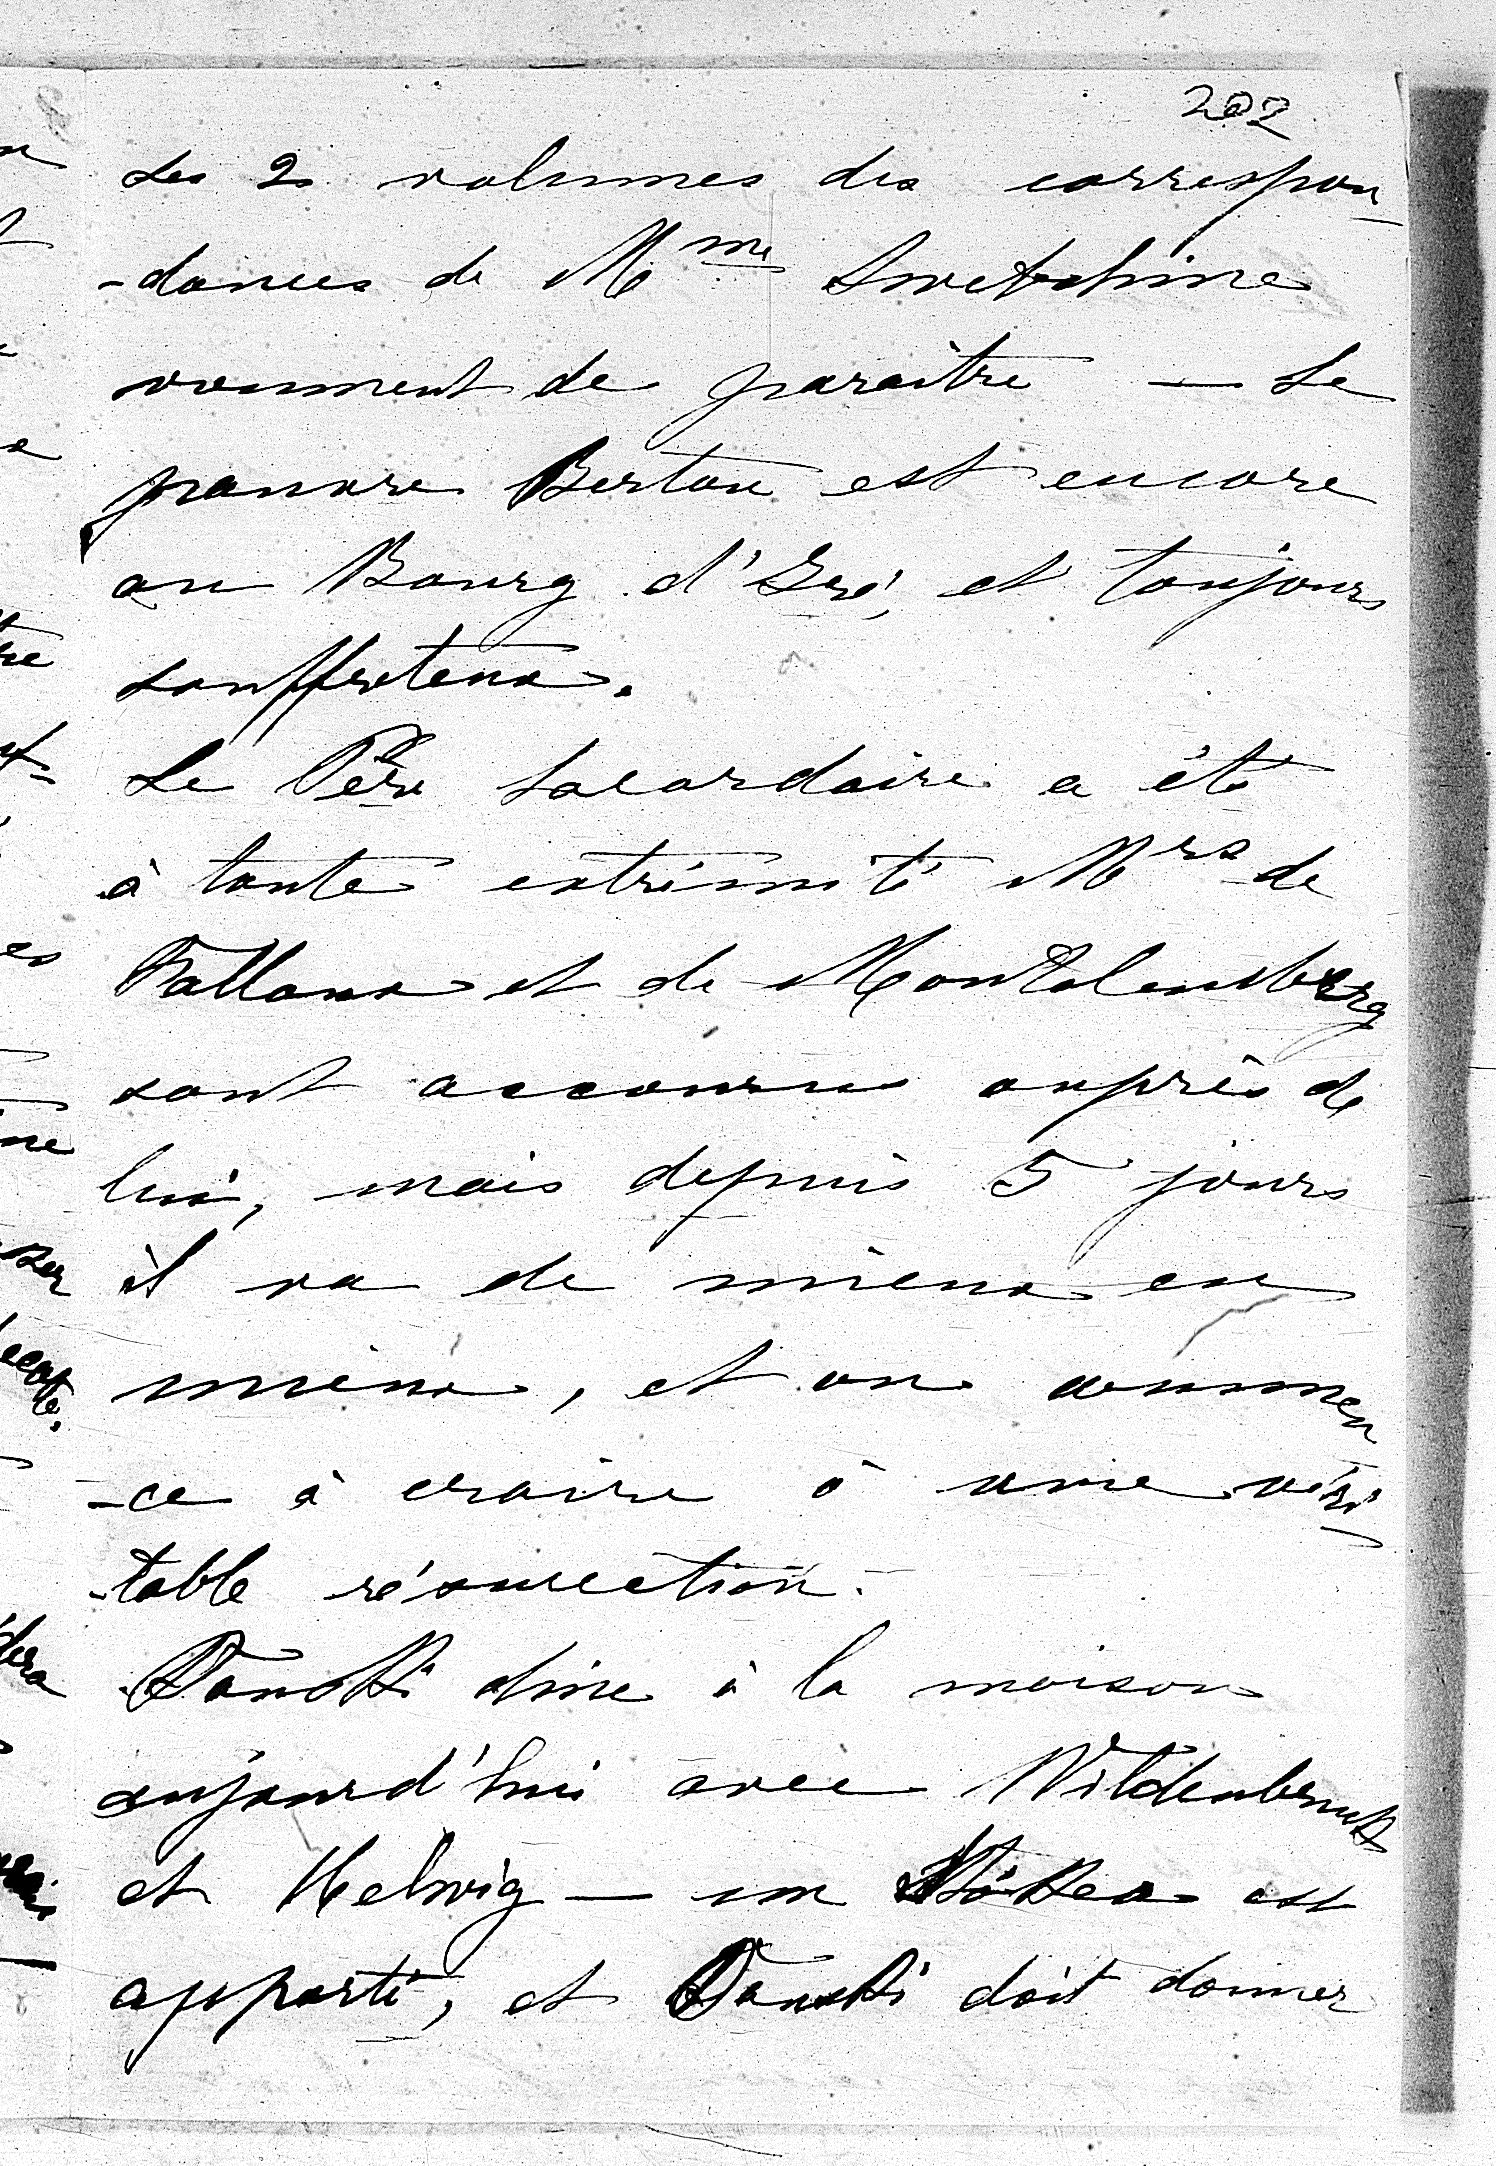 202
Les 2 volumes des correspon
-dances de Mme Swetchine
viennent de paraître — Le
pauvre Berton est encore
au Bourg d'Iré, et toujours
souffreteux.
Le Père Lacordaire a été
à toute extrémité Mrs de
Falloux et de Montalemberg
sont accourus auprès de
lui, mais depuis 5 jours
il va de mieux en
mieux, et on commen
-ce à croire à une véri
-table résurection.
dine à la maison
aujourd'hui avec Wildenbruk
et Helwig — un est
apporté, et doit donner